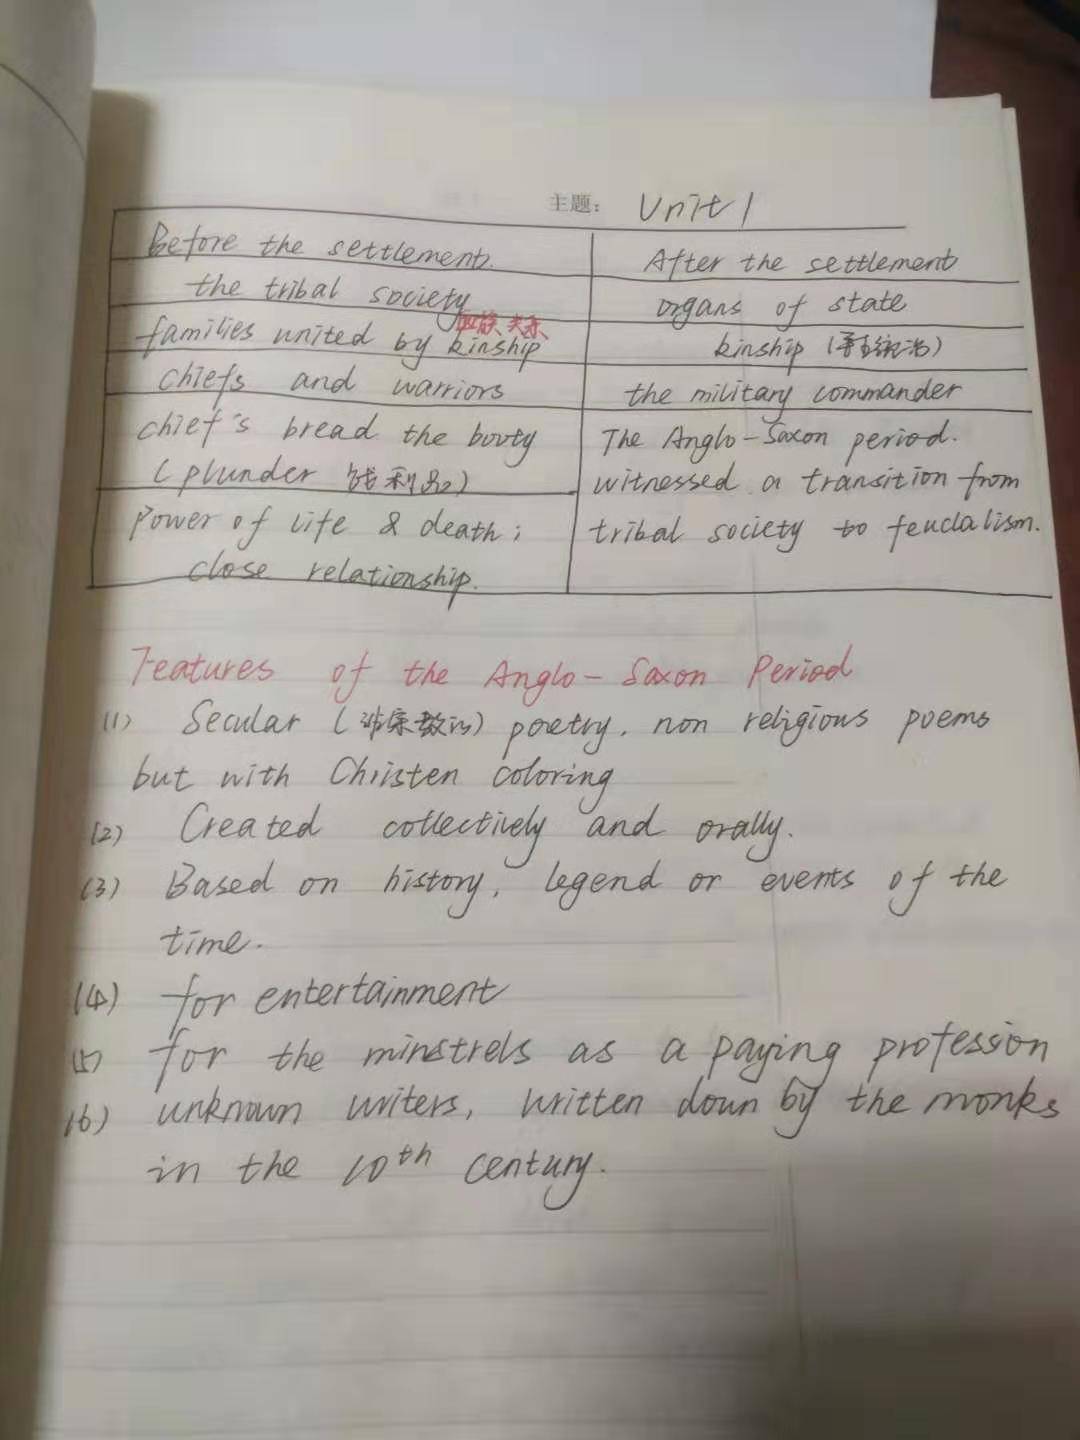 主题： Unit 1
Before the settlement.
After the settlement
the tribal society
organs of state
families united by kinship
kinship (
chiefs and warriors
the military commander
chief's bread the booty
(plunder 战利品)
The Anglo-Saxon period.
witnessed a transition from
tribal society to feudalism.
Power of life & death;
close relationship.
Features of the Anglo-Saxon Period
(1) Secular (非宗教的) poetry, non religious poems
but with Christen coloring
(2) Created collectively and orally.
(3) Based on history, legend or events of the
time.
(4) for entertainment
(5) for the minstrels as a paying profession
(6) unknown writers, written down by the monks
in the 10th century.